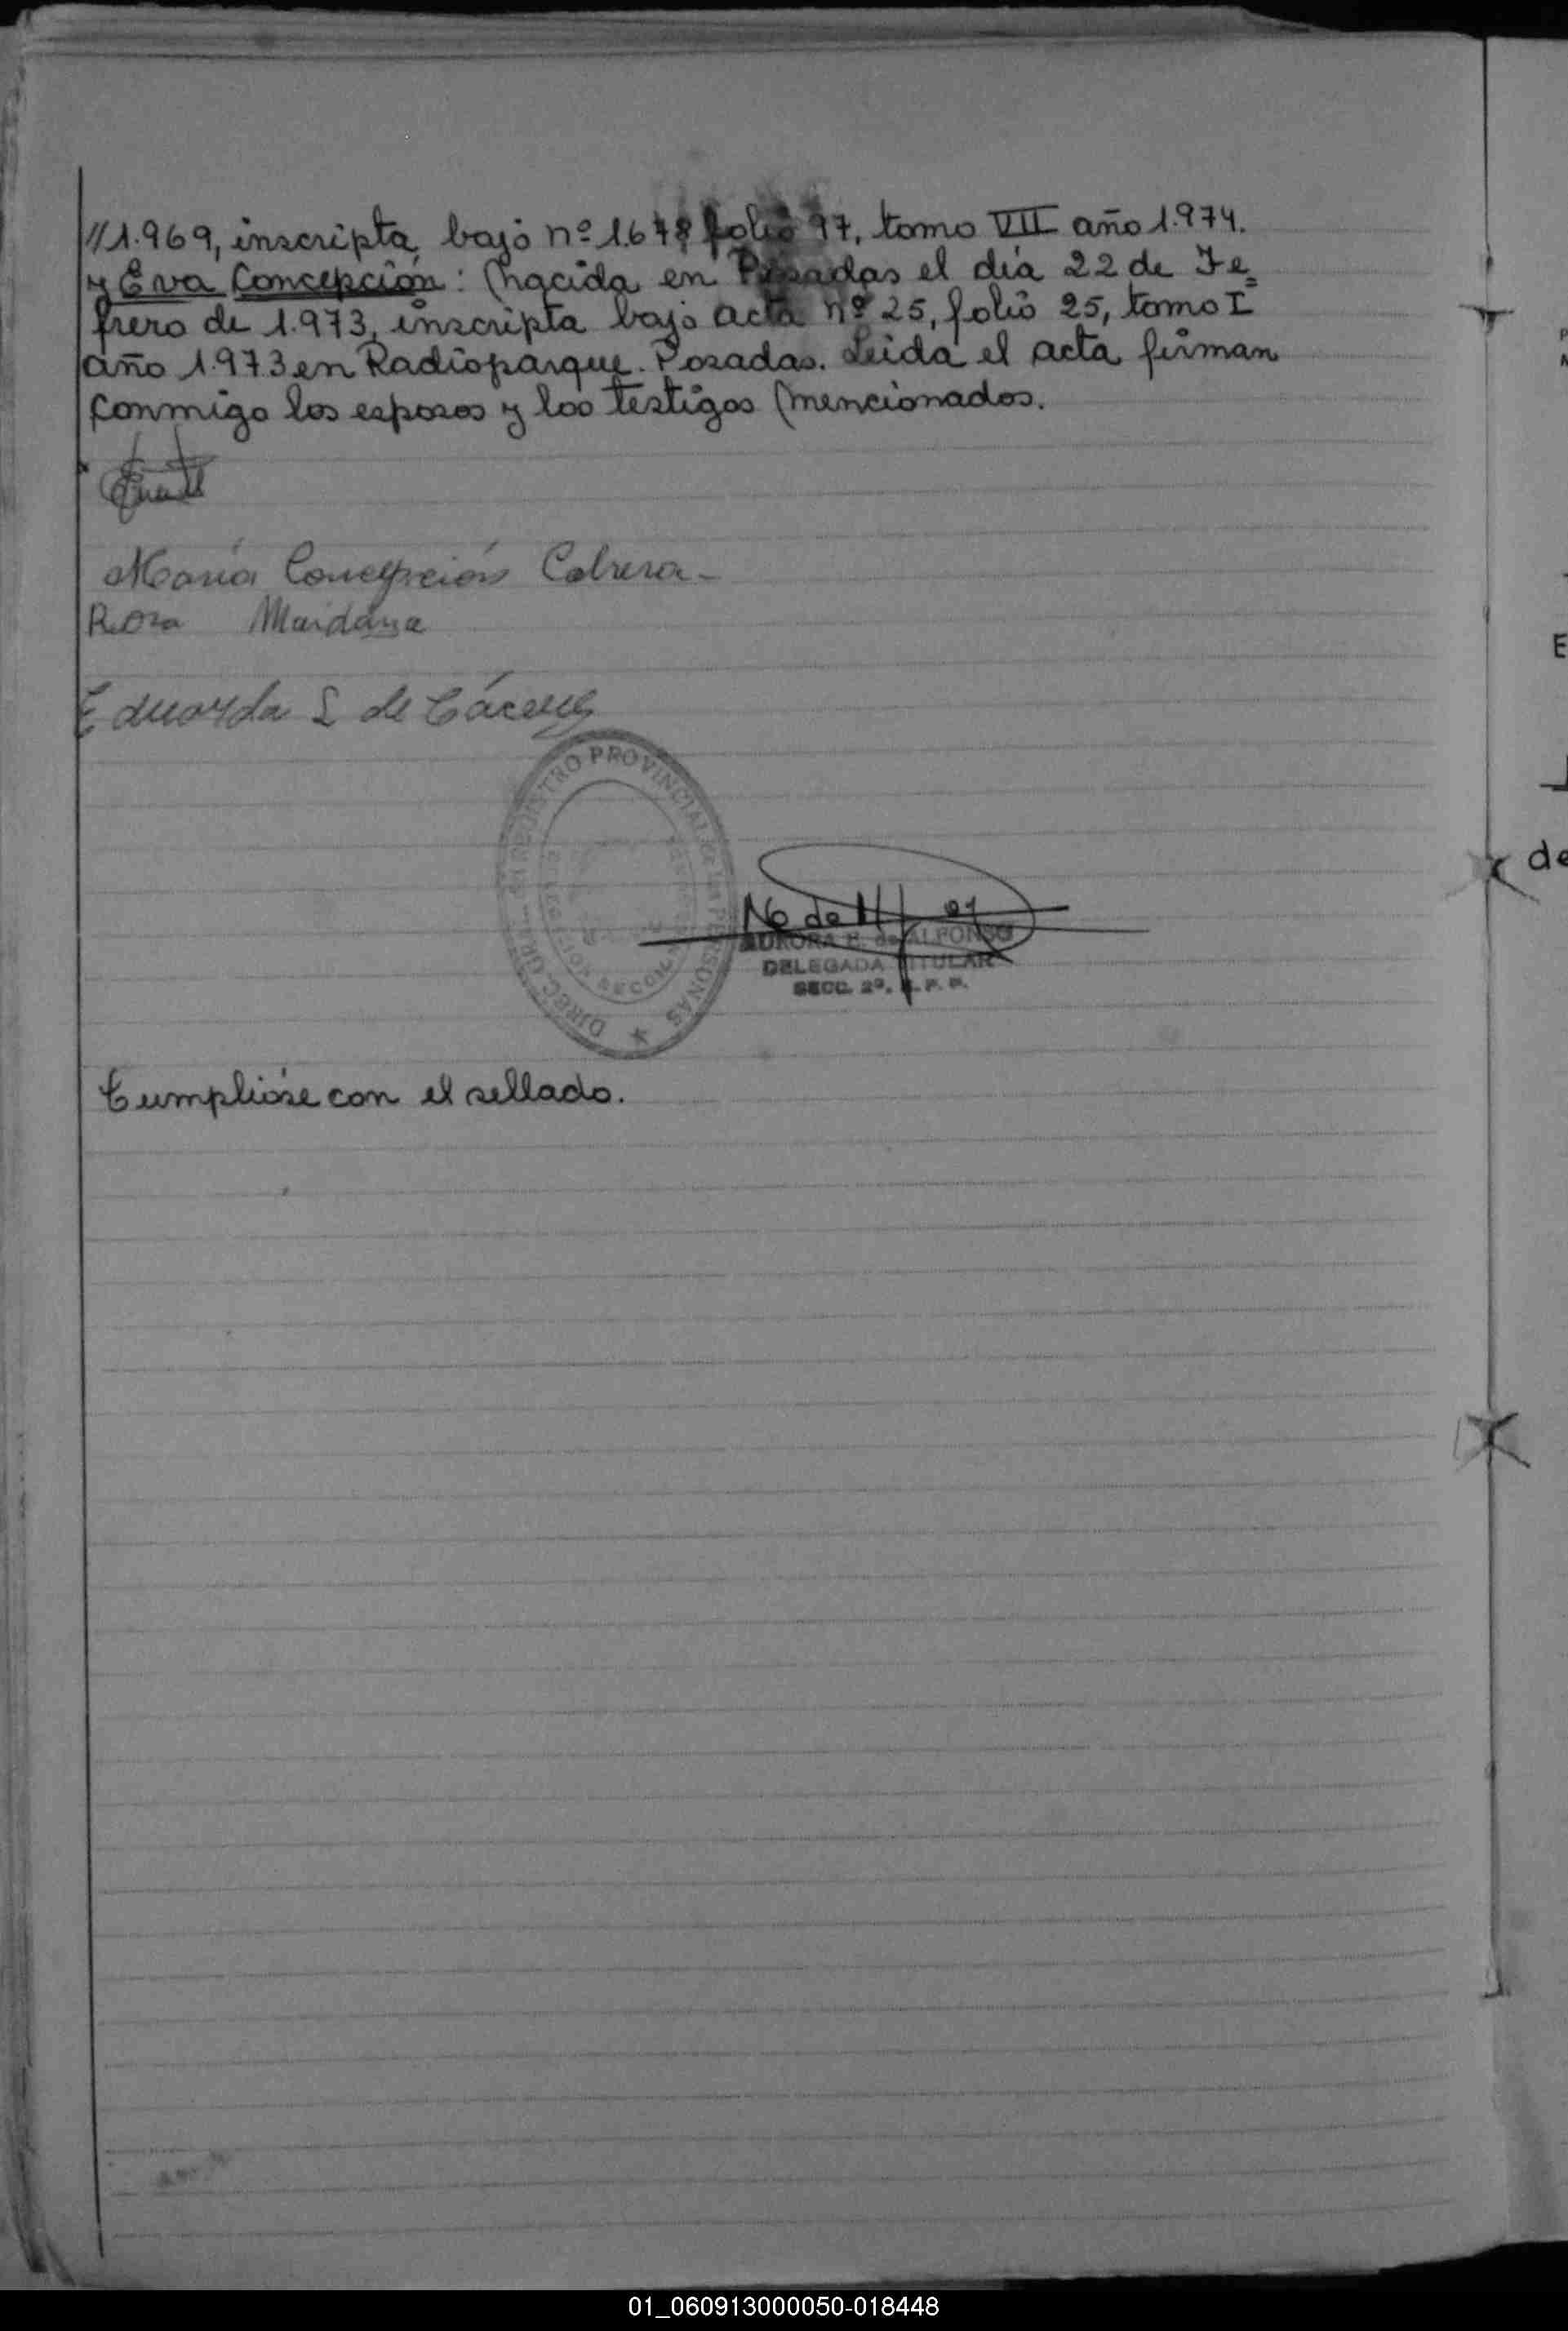 //1.969, inscripta bajo nº 1.678 folio 97, tomo VII año 1.974.
y Eva Concepción: nacida en Posadas el día 22 de Fe=
brero de 1.973, inscripta bajo acta nº 25, folio 25, tomo I
año 1.973 en Radioparque. Posadas. Leida el acta firman
conmigo los esposos y los testigos mencionados.
María Concepción Cabrera-
Rosa Maidana
Eduarda L de Cáceres
DIREC. GRAL. del REGISTRO PROVINCIAL de las PERSONAS
AURORA E. de ALFONSO
DELEGADA TITULAR
SECC. 2ª. R. P. P.
Cumplióse con el sellado.
de
01_060913000050-018448